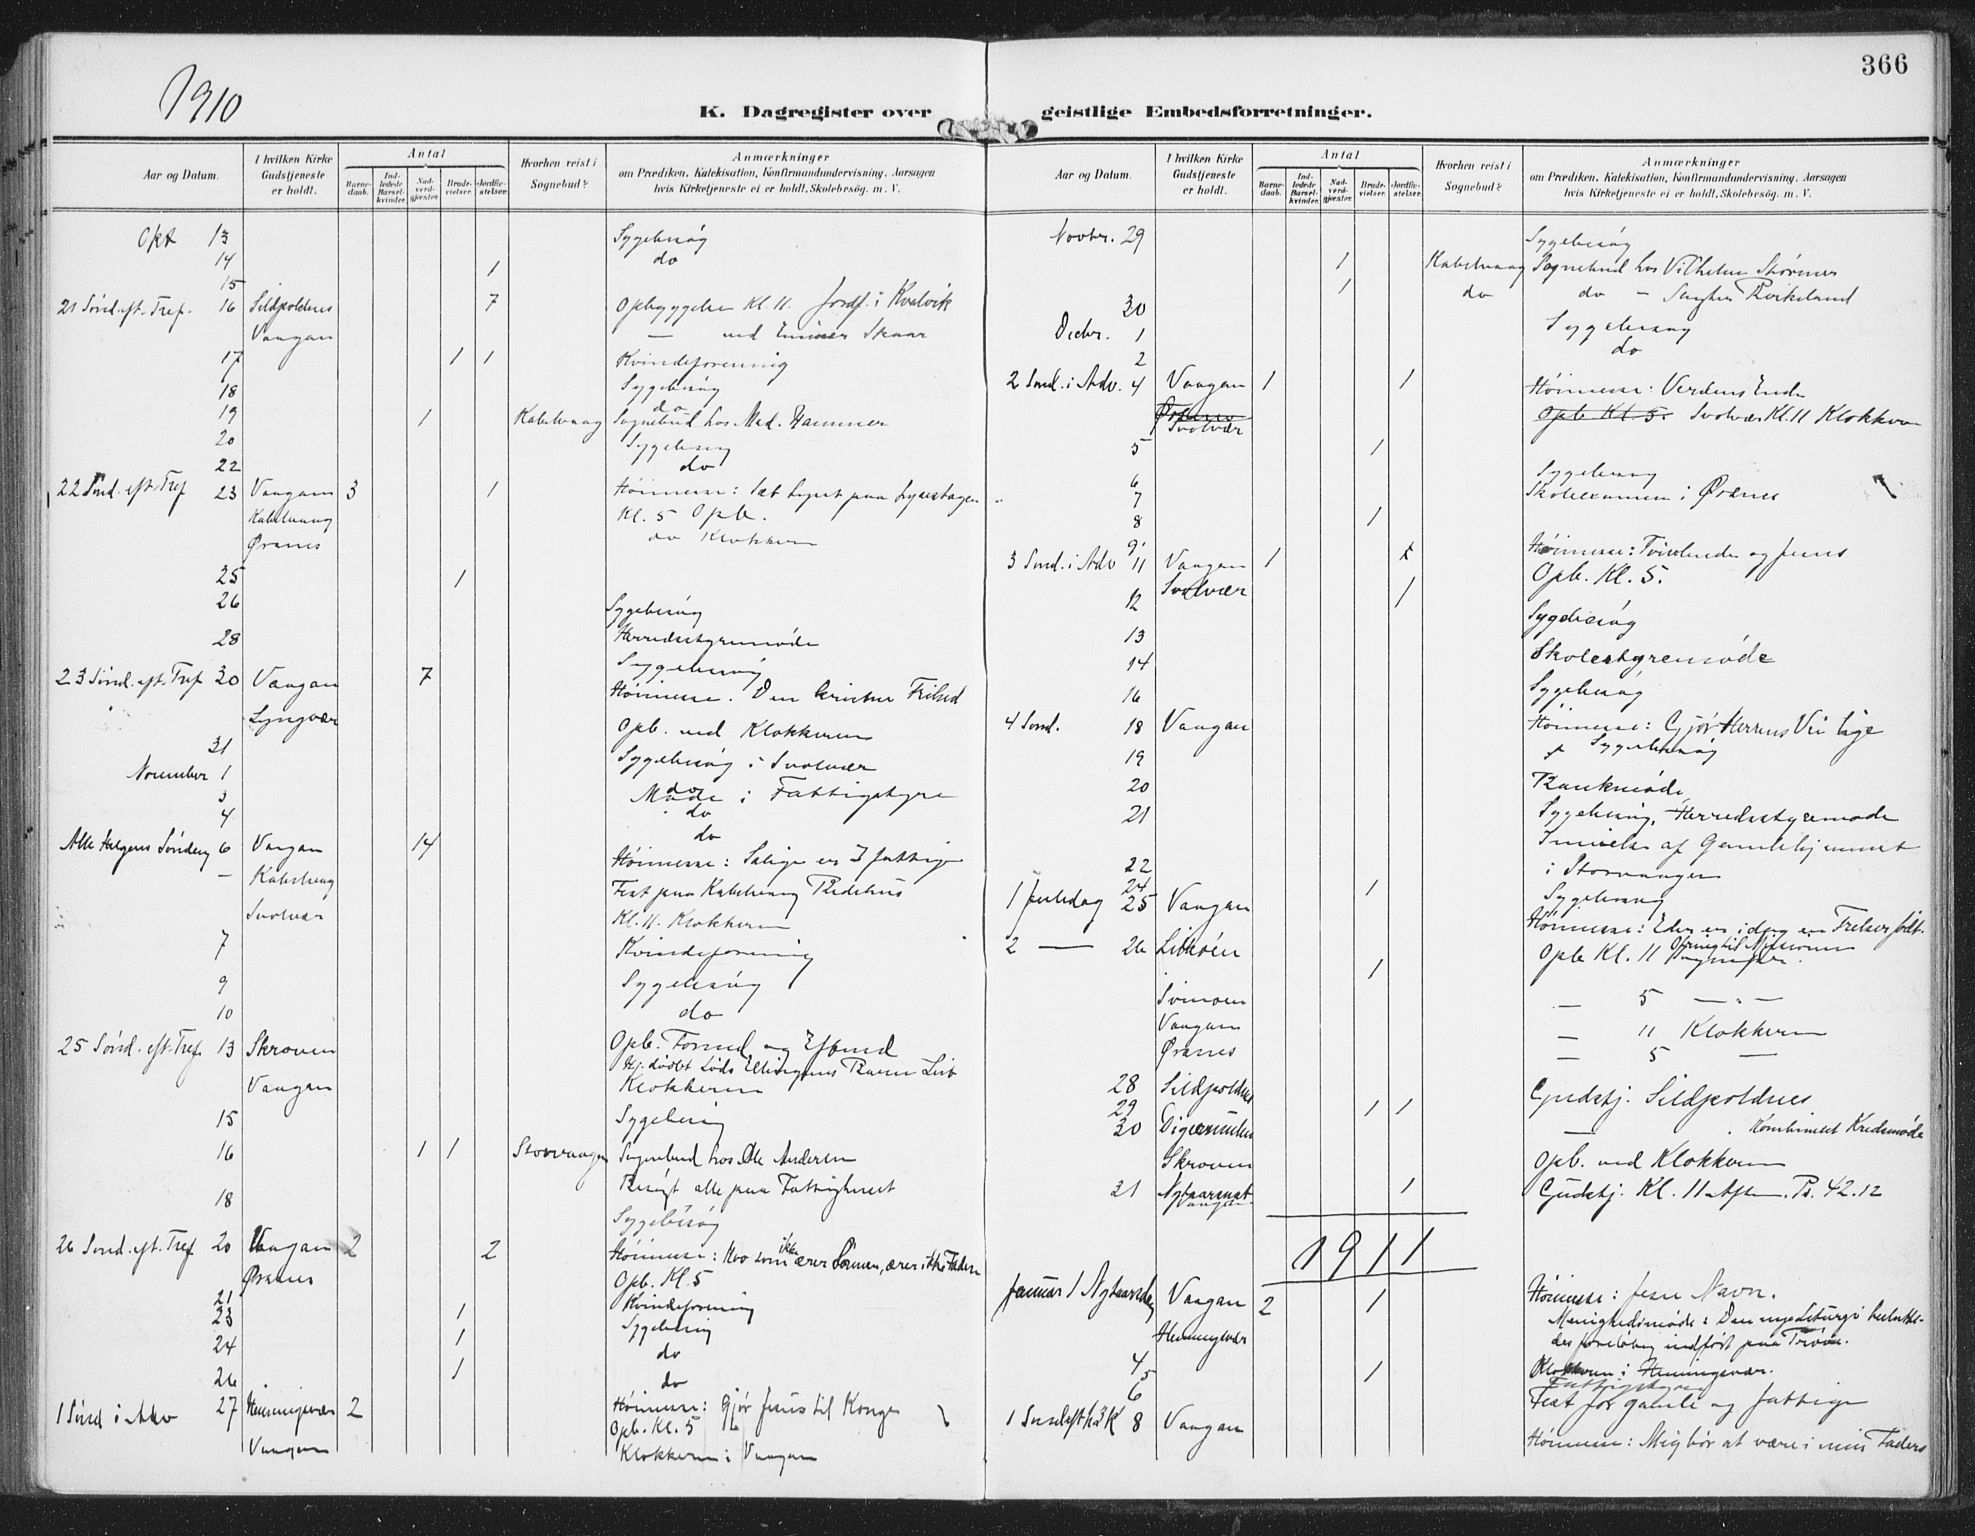 1910
366
K. Dagregister over geistlige Embedsforretninger.
Aar og Datum.
I hvilken Kirke Gudstjeneste er holdt.
Antal
Barnedaab.
Indledede Barselkvinder.
Nadverdgjæster.
Brudevielser.
Jordfæstelser.
Hvorhen reist i Sognebud?
Anmærkninger
om Prædiken, Katekisation, Konfirmandundervisning, Aarsagen
hvis Kirketjeneste ei er holdt, Skolebesøg. m. V.
Okt 13 Sygebesøg
14 1 do
15
21 Sønd. eft. Tref. 16 Sildpoldnes 7 Opbyggelse Kl. 11. Jordf. i Kvalvik
Vaagan — ved Skaar
17 1 1 Kvindeforening
18 Sygebesøg
do
19 1 Kabelvaag Sognebud hos Med. Hammer
20 Sygebesøg
22 do
22 Sønd. eft. Tref 23 Vaagan 3 1 Høimesse:
Kabelvaag Kl. 5 Opb.
Øranes do Klokkeren
25 1
26 Sygebesøg
Herredsstyremøde
28 Sygebesøg
23 Sønd. eft. Tref 30 Vaagan 7 Høimesse. Den kristne Frihed
Lyngvær Opb. ved Klokkeren
31 Sygebesøg i Svolvær
November 1 do
3 Møde i Fattigstyre
4 do
do
Alle Helgens Søndag 6 Vaagan 14 Høimesse: Salige er I fattige
— Kabelvaag Fest paa Kabelvaag Bedehus
Svolvær Kl. 11. Klokkeren
7 Kvindeforening
9 Sygebesøg
10 do
25 Sønd. eft. Tref. 13 Skroven Opb. Formd og Efmd
Vaagan Klokkeren
15 Sygebesøg
16 1 1 Storvaagen Sognebud hos Ole Andersen
Besøgt alle paa Fattighuset
18 Sygebesøg
26 Sønd. eft. Tref 20 Vaagan 2 2 Høimesse: Hvo som ikke ærer Sønnen, ærer ikke Faderen
Øranes Opb. Kl. 5
21 Kvindeforening
23 1 Sygebesøg
24 1 do
26 1 do
1 Sønd i Adv 27 Henningsvær 2 Høimesse: Gjør Jesus til Konge
Opb. Kl. 5
Vaagan Klokkeren i Vaagan
K. Dagregister over geistlige Embedsforretninger.
Aar og Datum.
I hvilken Kirke Gudstjeneste er holdt.
Antal
Barnedaab.
Indledede Barselkvinder.
Nadverdgjæster.
Brudevielser.
Jordfæstelser.
Hvorhen reist i Sognebud?
Anmærkninger
om Prædiken, Katekisation, Konfirmandundervisning, Aarsagen
hvis Kirketjeneste ei er holdt, Skolebesøg. m. V.
Novbr. 29 Sygebesøg
1 Kabelvaag Sognebud hos Vilhelm Størmer
1 do do — Birkeland
30 Sygebesøg
Decbr. 1 do
2
2 Sønd. i Adv. 4 Vaagan 1 1 Høimesse: Verdens Ende
Øranes Opb Kl. 5. Svolvær Kl. 11 Klokkeren
Svolvær
5 1
6 Sygebesøg
7 Skoleexamen i Øranes
8 1
9
3 Sønd. i Adv 11 Vaagan 1 1 Høimesse: Tvivlende og Jesus
Svolvær Opb. Kl. 5.
12 1 Sygebesøg
13
14 Skolestyremøde
16 Sygebesøg
4 Sønd. 18 Vaagan Høimesse: Gjør Herrens Vei lige
19 Sygebesøg
20 Bankmøde
21 Sygebesøg, Herredsstyremøde
Indvielse af Gamlehjemmet
22 i Storvaagen
24 1 Sygebesøg
1 Juledag 25 Vaagan Høimesse: Eder er idag en Frelser født.
2 — 26 Opb Kl. 11 Ofring til Missionen
1
Svinøen — 5 — " —
Vaagan — 11 Klokkeren
Øranes — 5 —
28 Sildpoldnes Gudstj. Sildpoldnes
29 1 1
30 Digermulen — Kombineret Kredsmøde
Skroven Opb. ved Klokkeren
31 Nytaarsnat 1 Gudstj. Kl. 11 Aften. Ps. 42.12
Vaagan
1911
Januar 1 Nytaarsdag Vaagan 2 1 Høimesse: Jesu Navn.
Menighedsmøde: Den nye Liturgi besluttedes foreløbig indført paa Prøve.
Henningsvær Klokkeren i Henningsvær.
4 Fattigstyre
5 1
6 Fest for gamle og fattige
1 Sønd eft H3K 8 Vaagan Høimesse: Mig bør at være i min Faders